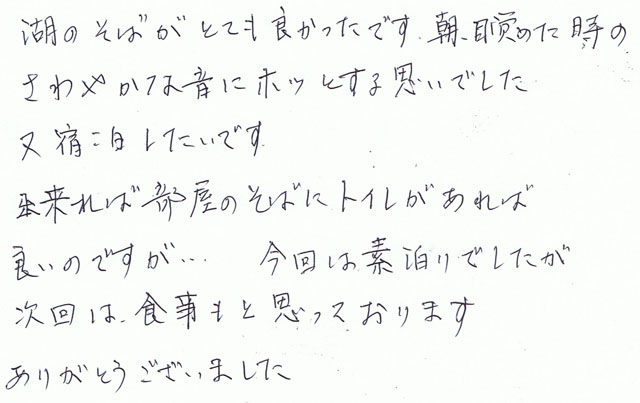 湖のそばがとても良かったです。朝、目覚めた時の
さわやかな音にホッとする思いでした
又宿泊したいです
出来れば部屋のそばにトイレがあれば
良いのですが… 今回は素泊りでしたが
次回は、食事もと思っております
ありがとうございました